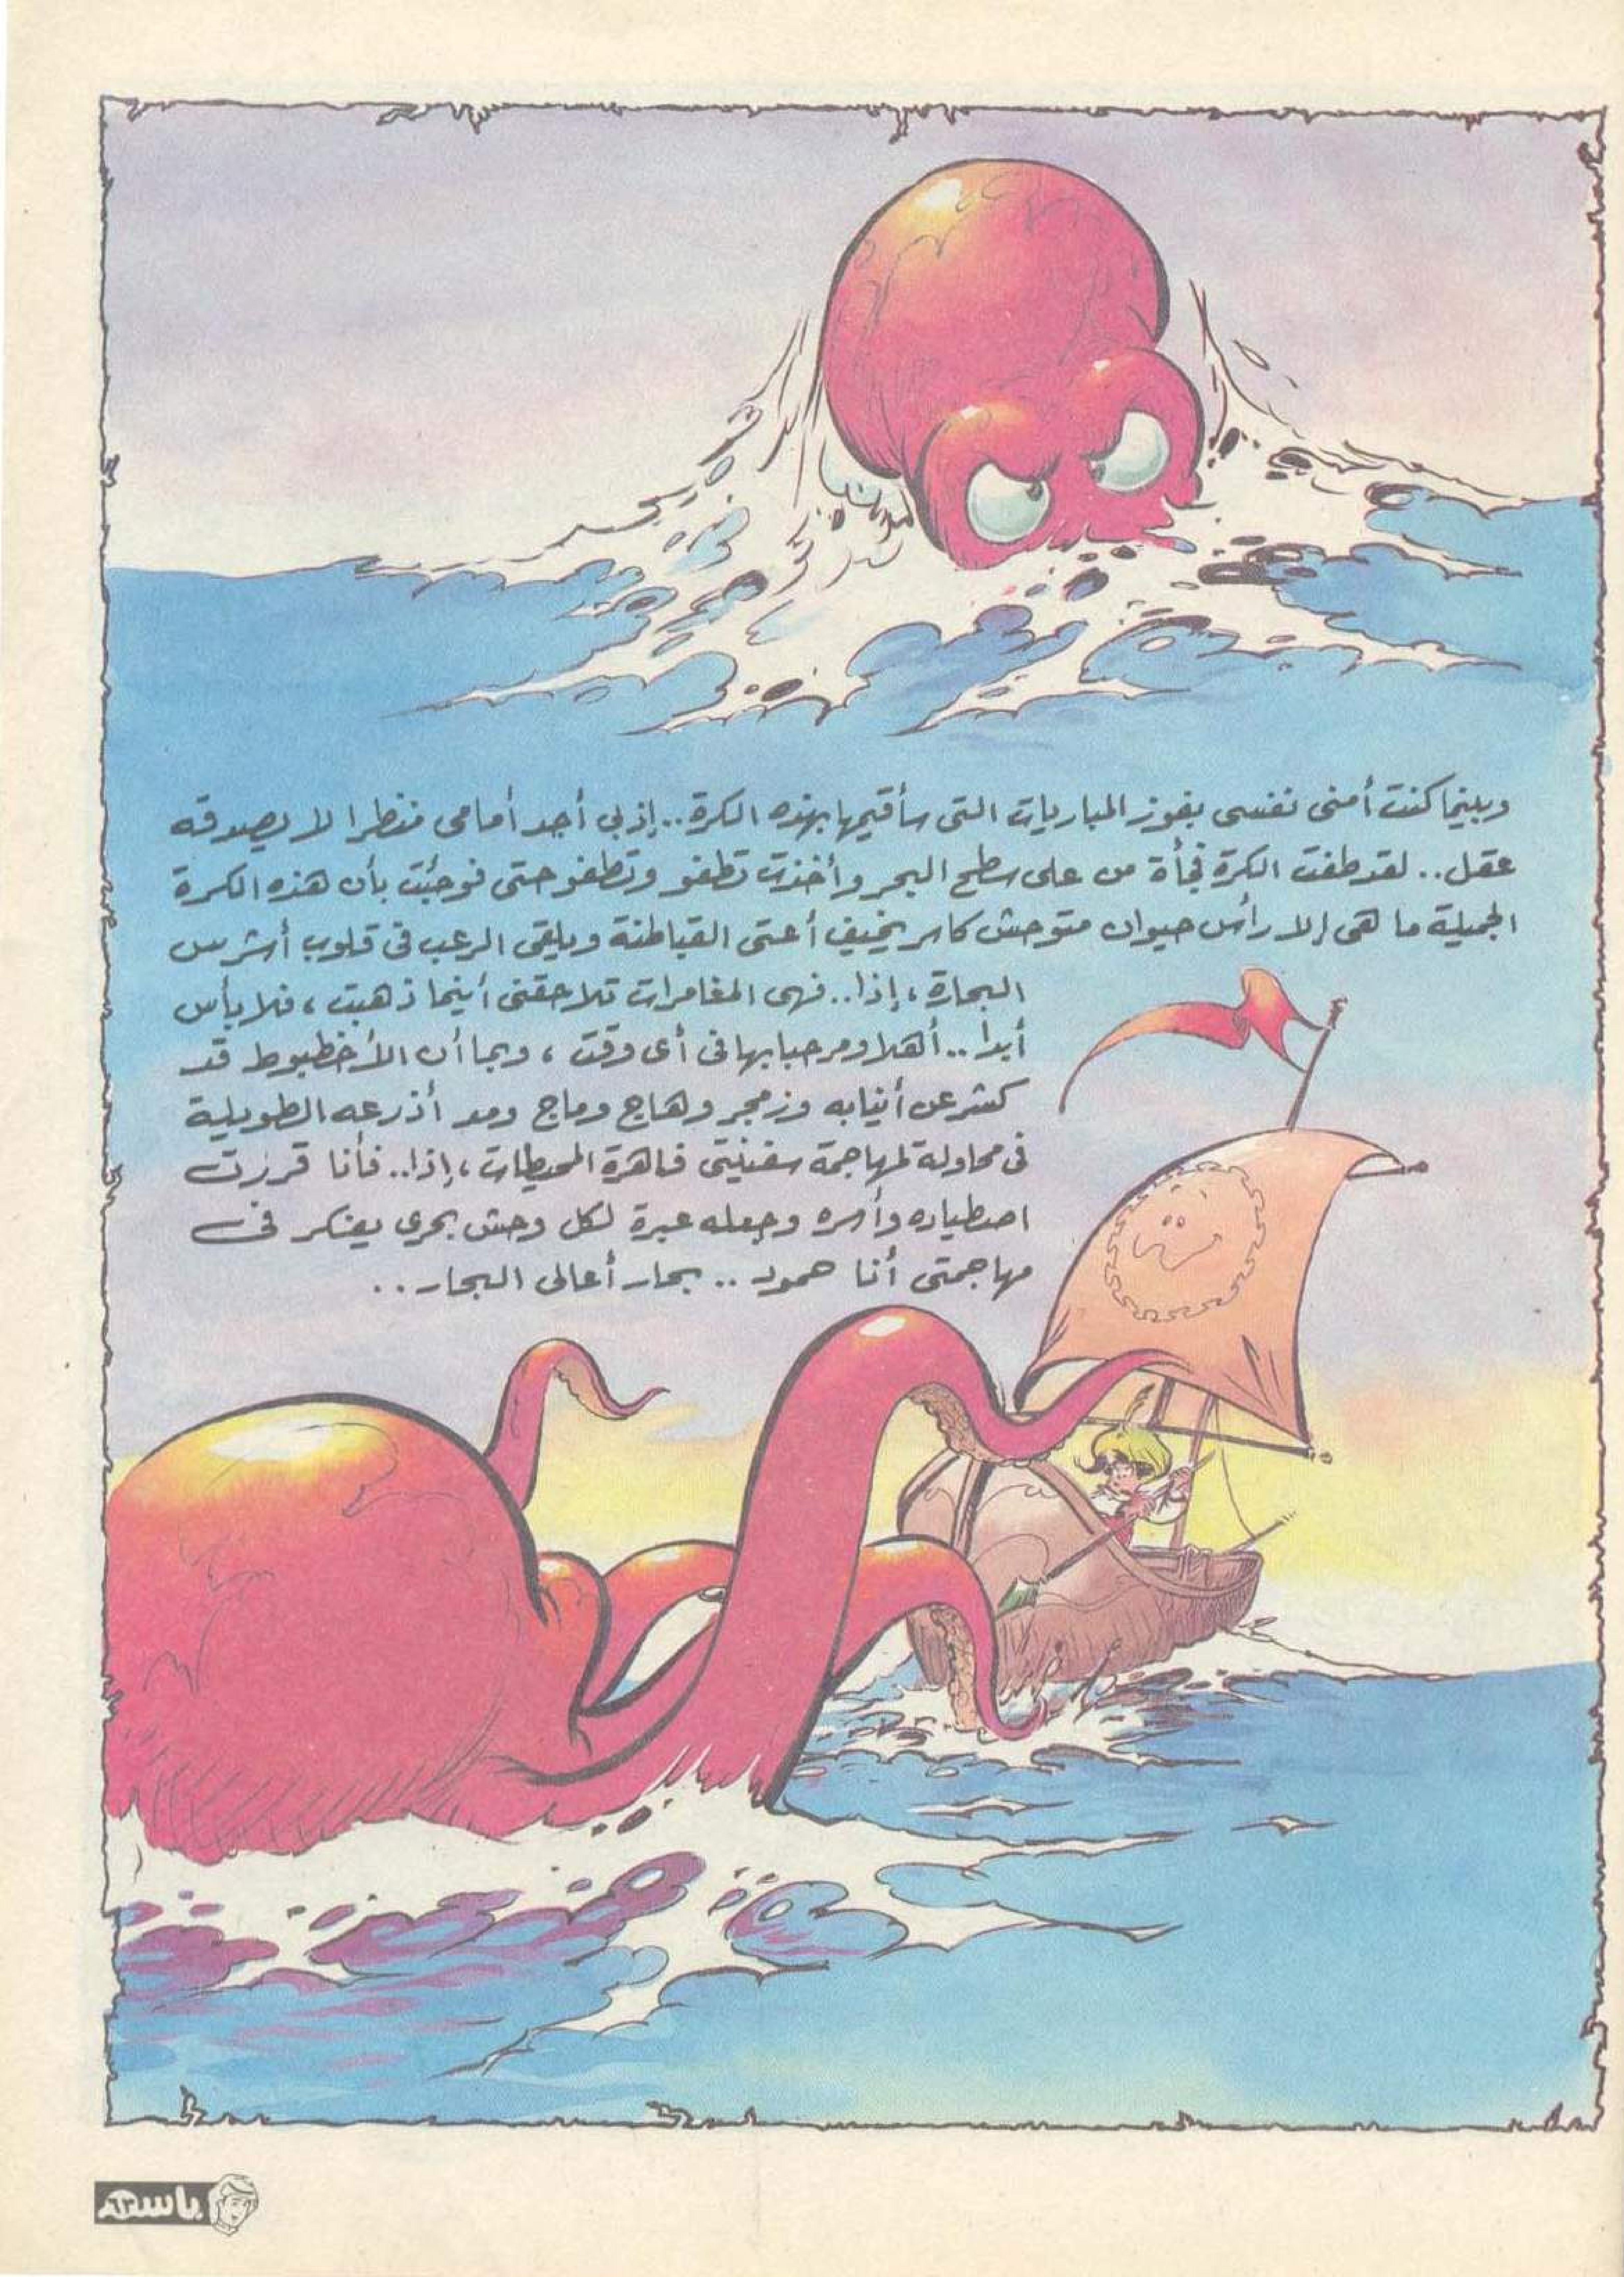 وبينما كنت أمنى نفسى بفوز المباريات التى سأقيمها بهذه الكرة.. إذ بي أجد أمامى منظرا لا يصدقه
عقل.. لقد طفت الكرة فجأة من على سطح البحر وأخذت تطفو وتطفو حتى فوجئت بأن هذه الكرة
الجميلة ما هى إلا رأس حيوان متوحش كاسر يخيف أعتى القباطنة ويلقى الرعب فى قلوب أشرس
البحارة، إذا.. فهى المغامرات تلاحقنى أينما ذهبت، فلا بأس
أبدا.. أهلا ومرحبا بها فى أى وقت، وبما أن الأخطبوط قد
كشر عن أنيابه وزمجر وهاج وماج ومد أذرعه الطويلة
فى محاولة لمهاجمة سفينتى قاهرة المحيطات، إذا.. فأنا قررت
اصطياده وأسره وجعله عبرة لكل وحش بحرى يفكر فى
مهاجمتى أنا همود .. بحار أعالى البحار..
باسم